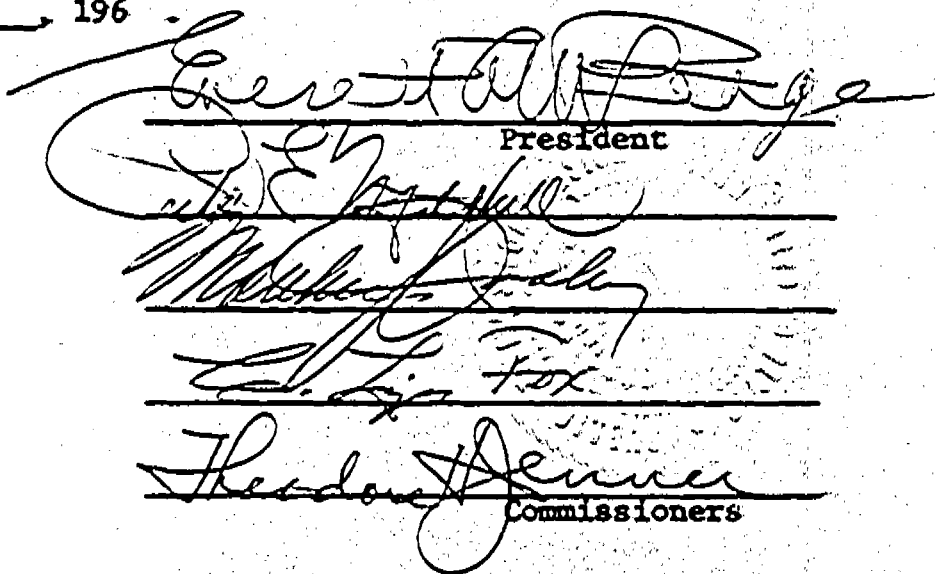 196 .
Everett C. McKeage
President
E. Mitchell
Matthew J. Dooley
C. Lyn Fox
Theodore H. Jenner
Commissioners